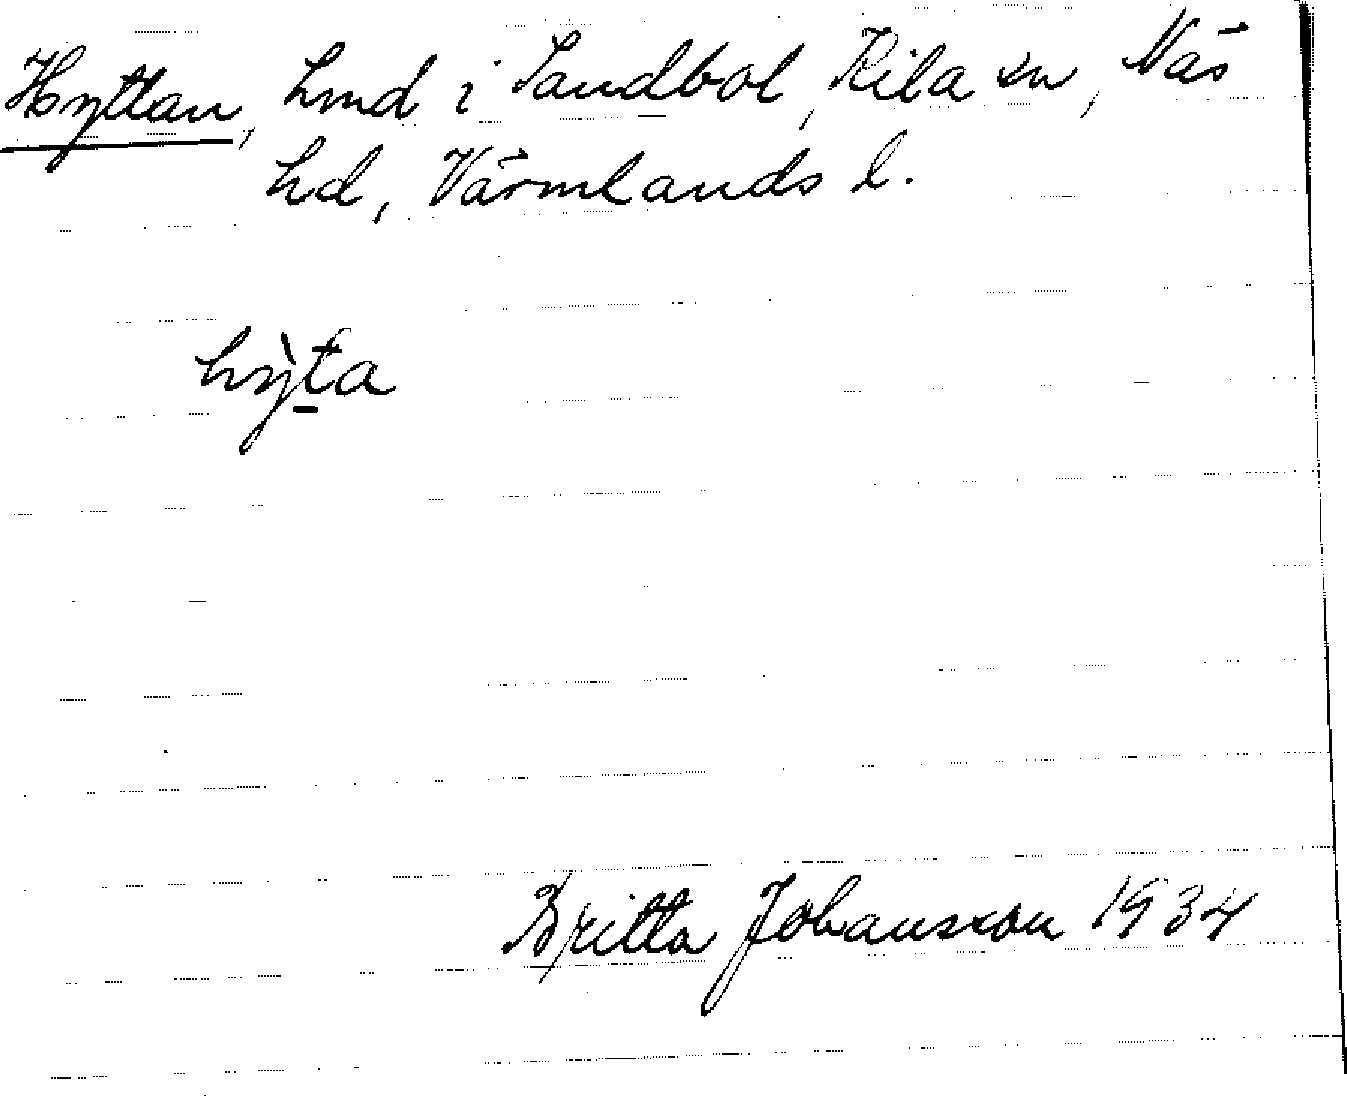 Hyttan, hmd i Sandbol, Kila sn, Näs
hd, Värmlands l.
hy̆̀ta
Britta Johansson 1934